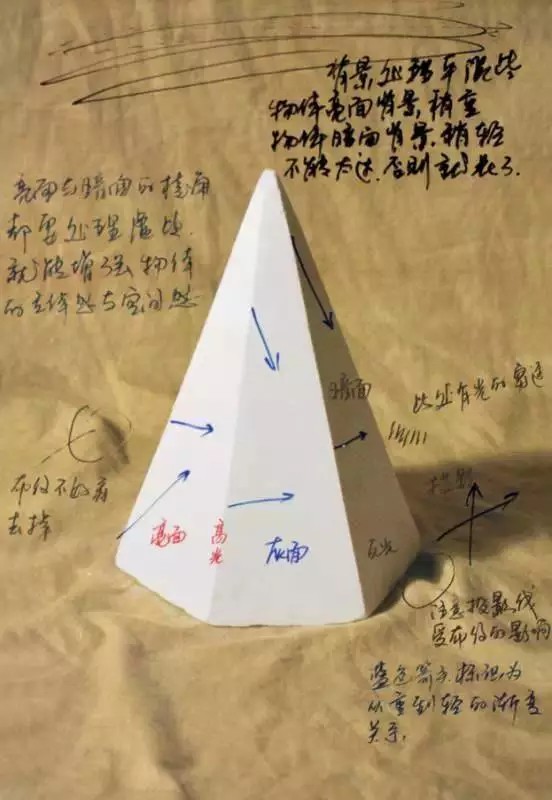 背景处理平混些
物体亮面背景,稍重
物体暗面背景,稍轻
不能太过.否则就花了
亮面与暗面的棱角
都要处理虚些.
就能增强物体
的立体感与空间感
暗面
此处有光的穿透
布纹不好看
去掉
投影
亮面
高
光
灰面
反光
注意投影线
受布纹的影响
蓝色箭头标识为
从重到轻的渐变
关系.